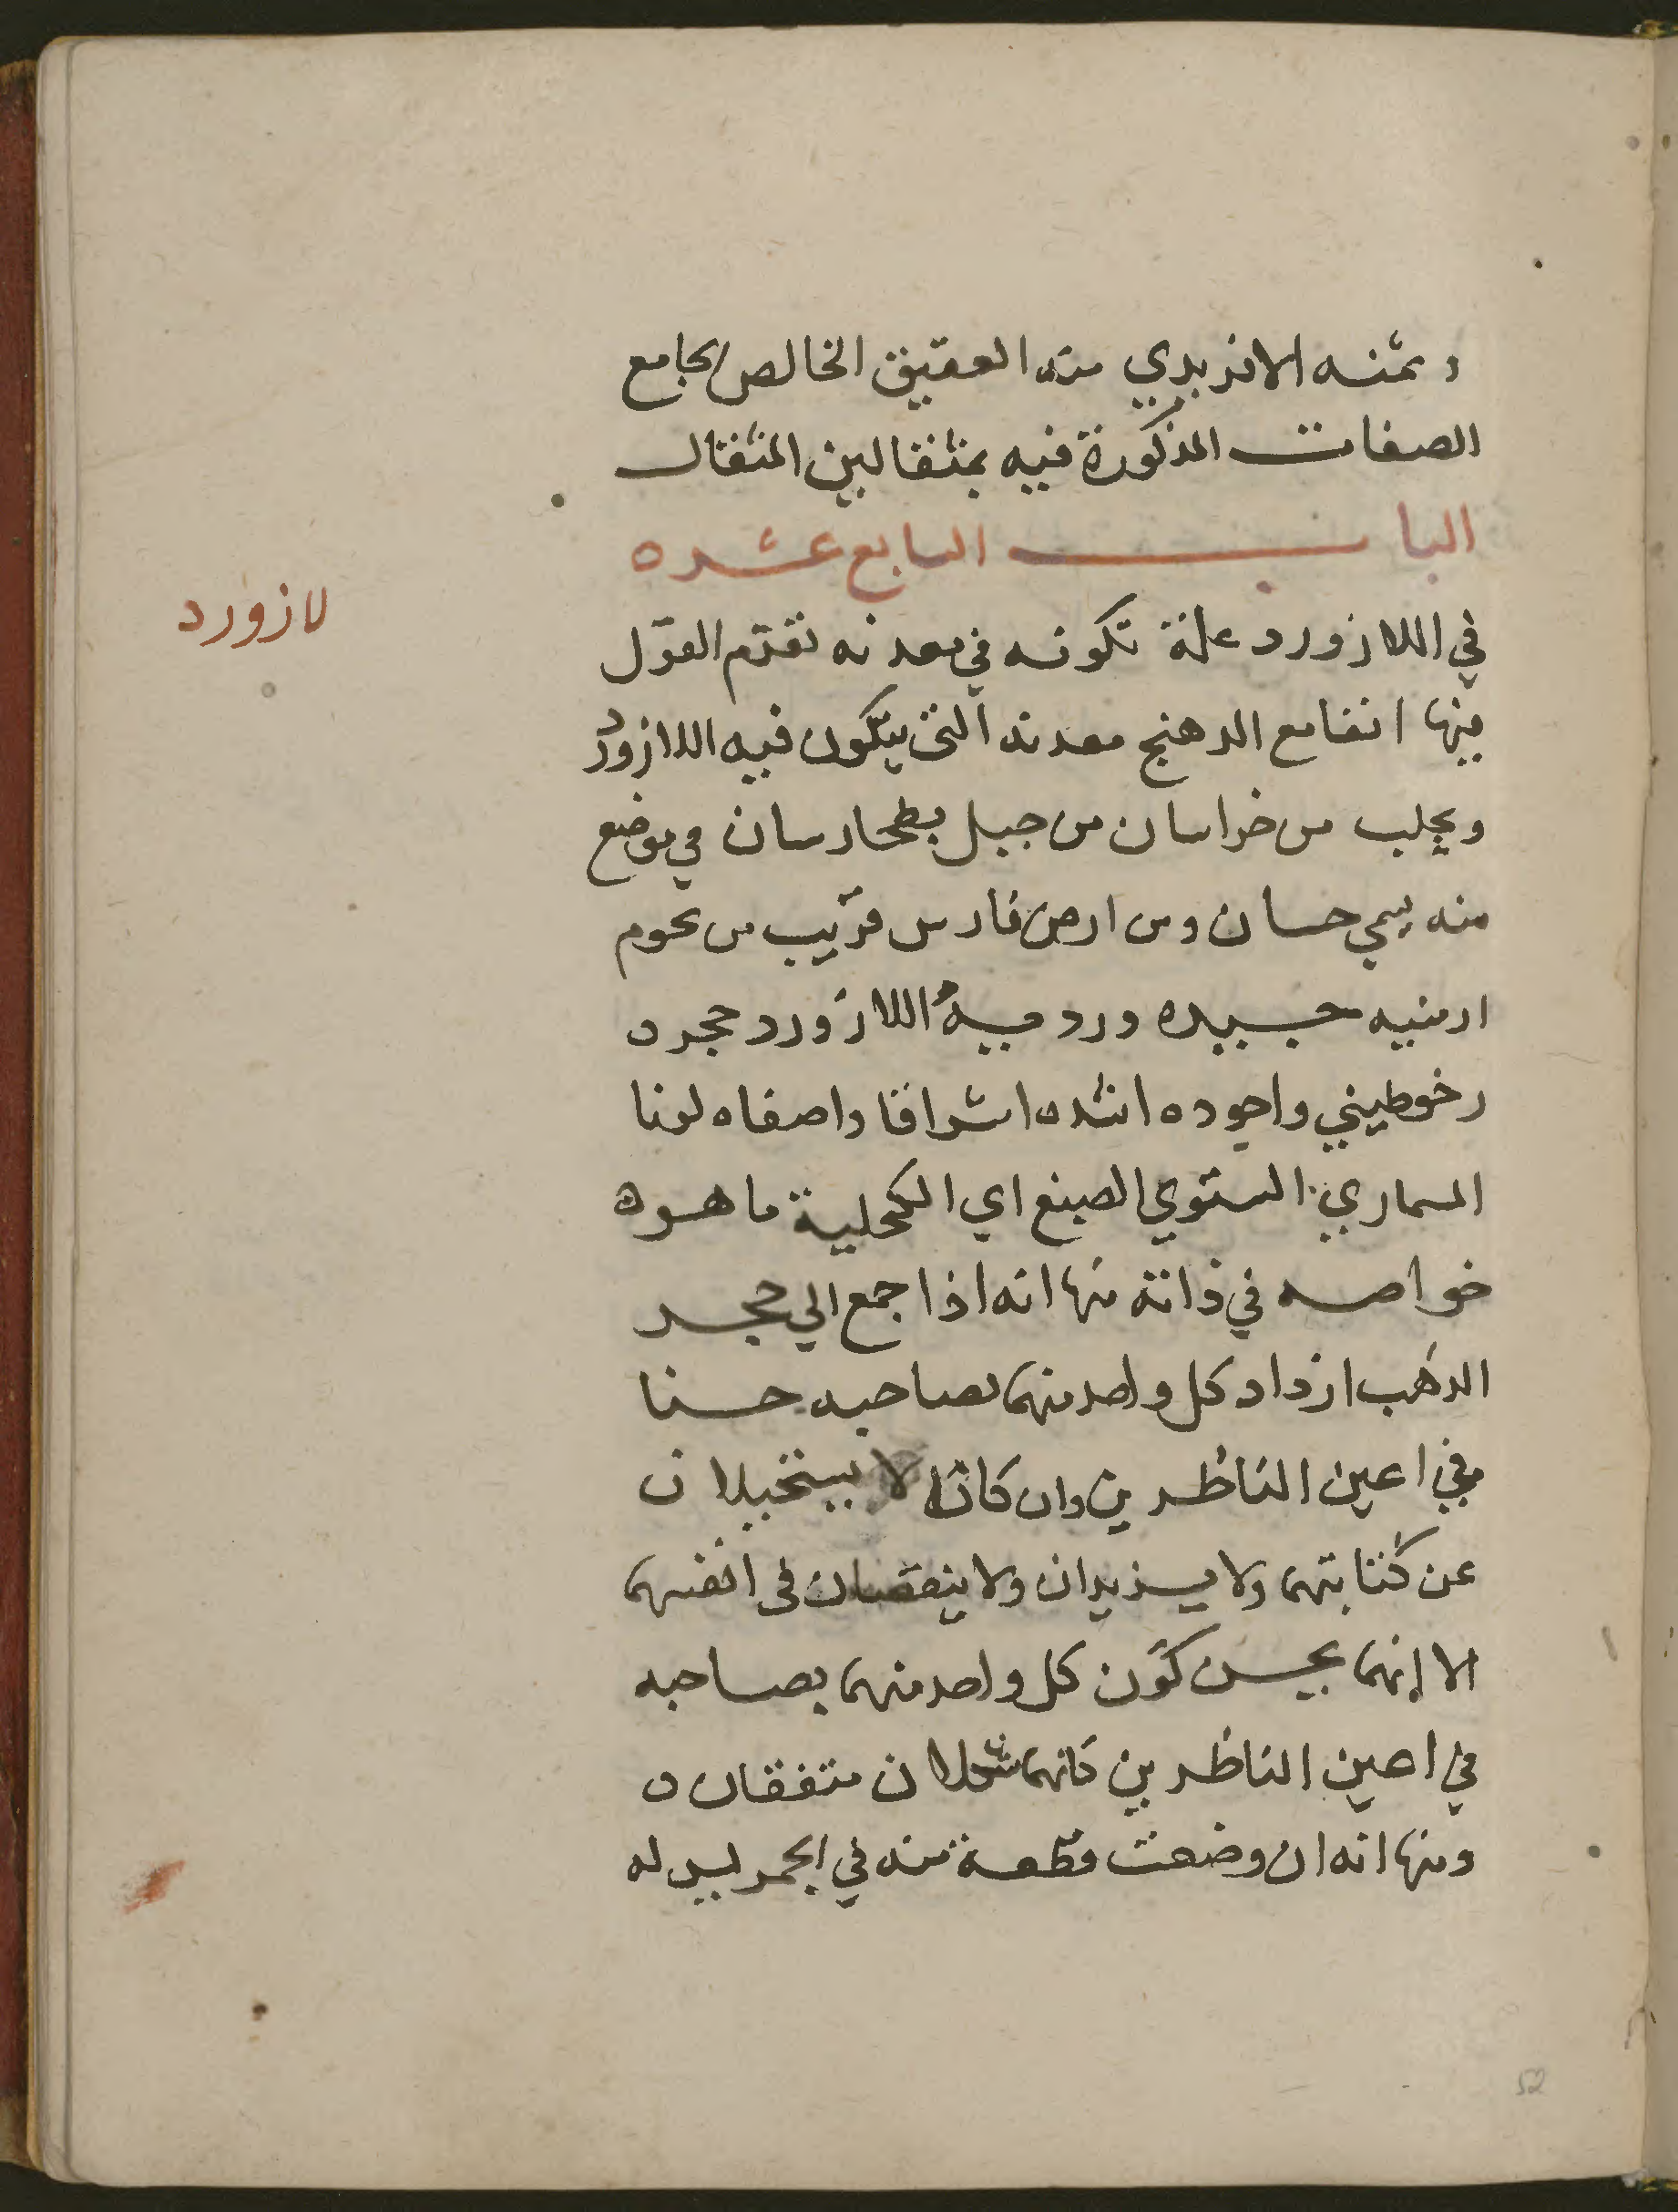 وثمنه الافرىدي منه العقيق الخالص الجامع
الصفات المذكورة فيه بمثقالين المثقال
الباب السابع عشره
لازورد
في اللازورد علة تكونه في معدنه تقدم القول
فيها انفا مع الدهنج معدنه التي يتكون فيه اللازورد
ويجلب من خراسان من جبل بطخارسان في موضع
منه يسمي حسان ومن ارض فارس قريب من تحوم
ارمنيه جيده ورديه اللازورد حجر
رخو طيني واجوده اشده اشراقا واصفاه لونا
السماري المستوي الصبغ اي الكحلية ما هو
خواصه في ذاته منها انه اذا جمع الي حجر
الذهب ازداد كل واحد منهما بصاحبه حسنا
في اعين الناظرين وان كانا لا يستحيلان
عن كتابتهما ولا يزيدان ولا ينقصان في انفسهما
الا انهما بحسن كون كل واحد منهما بصاحبه
في اعين الناظرين كانهما شكلان متفقان
ومنها انه ان وضعت قطعة منه في الجمر ليس له
52